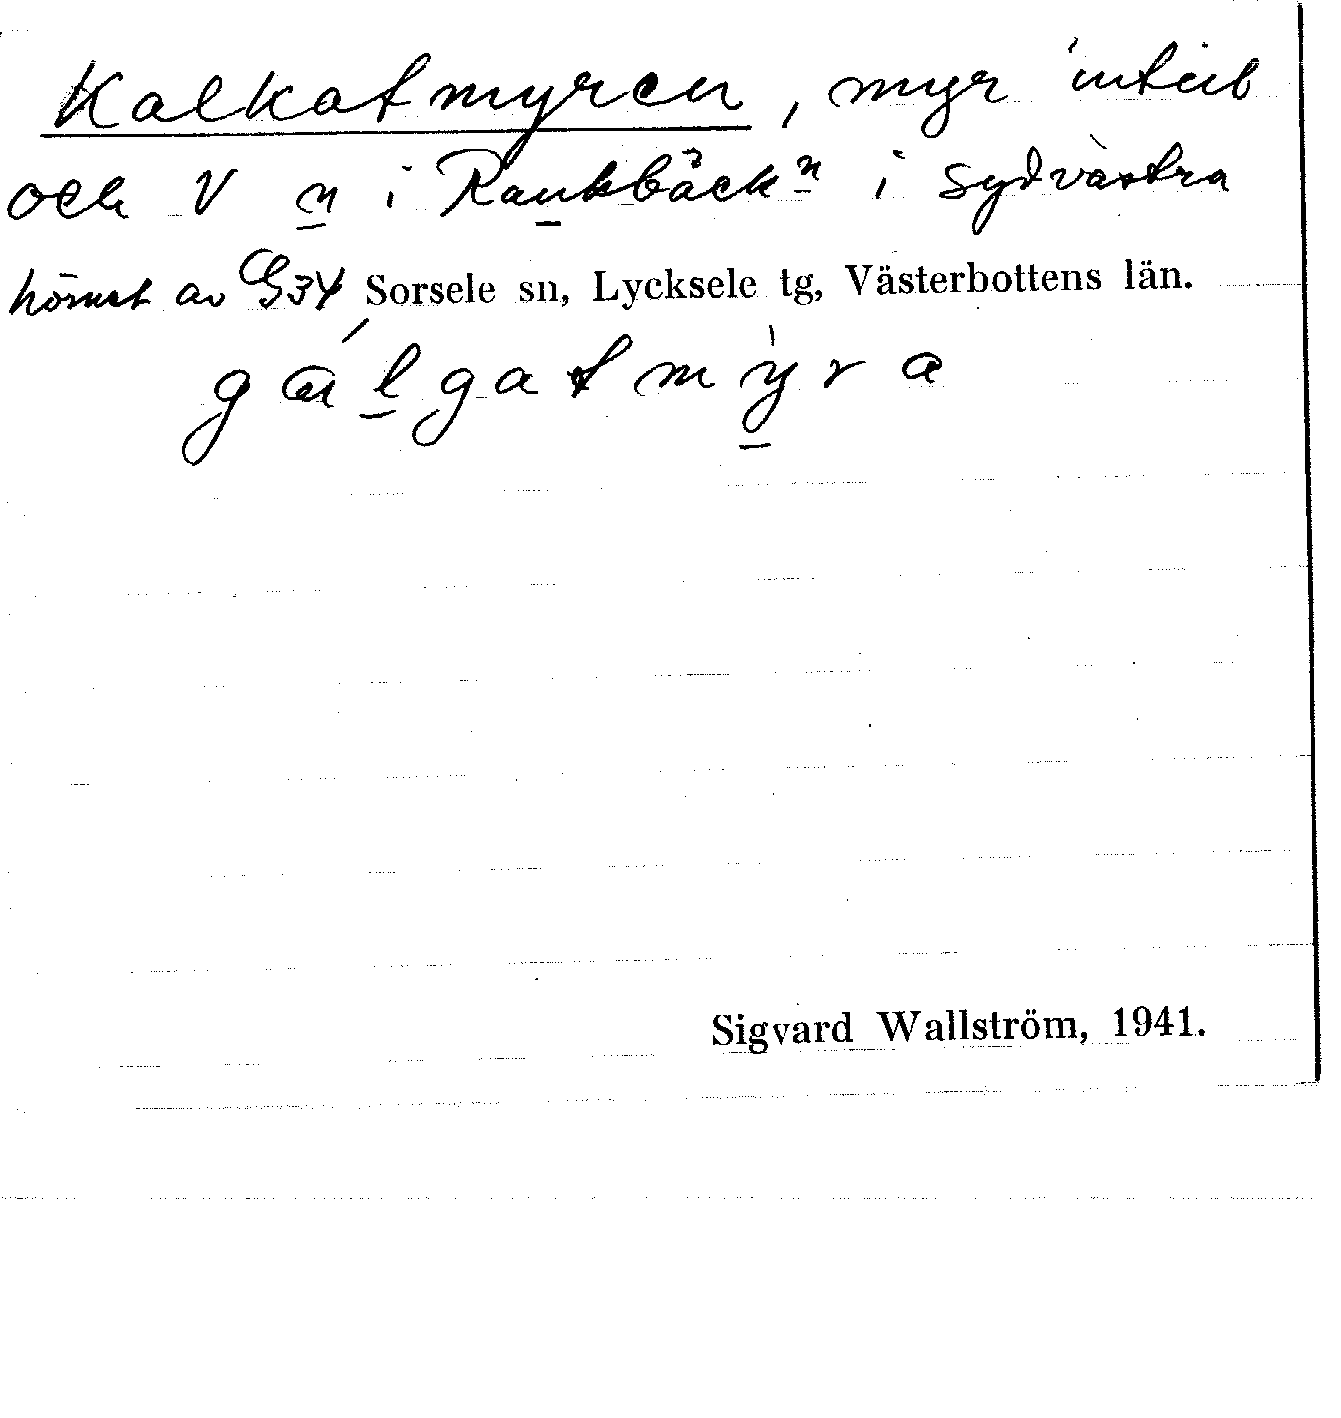 Kalkatmyren, myr intill
och V n i Raukbäckn i sydvästra
hörnet av G34 Sorsele sn, Lycksele tg, Västerbottens län.
gálgatmyra
Sigvard Wallström, 1941.